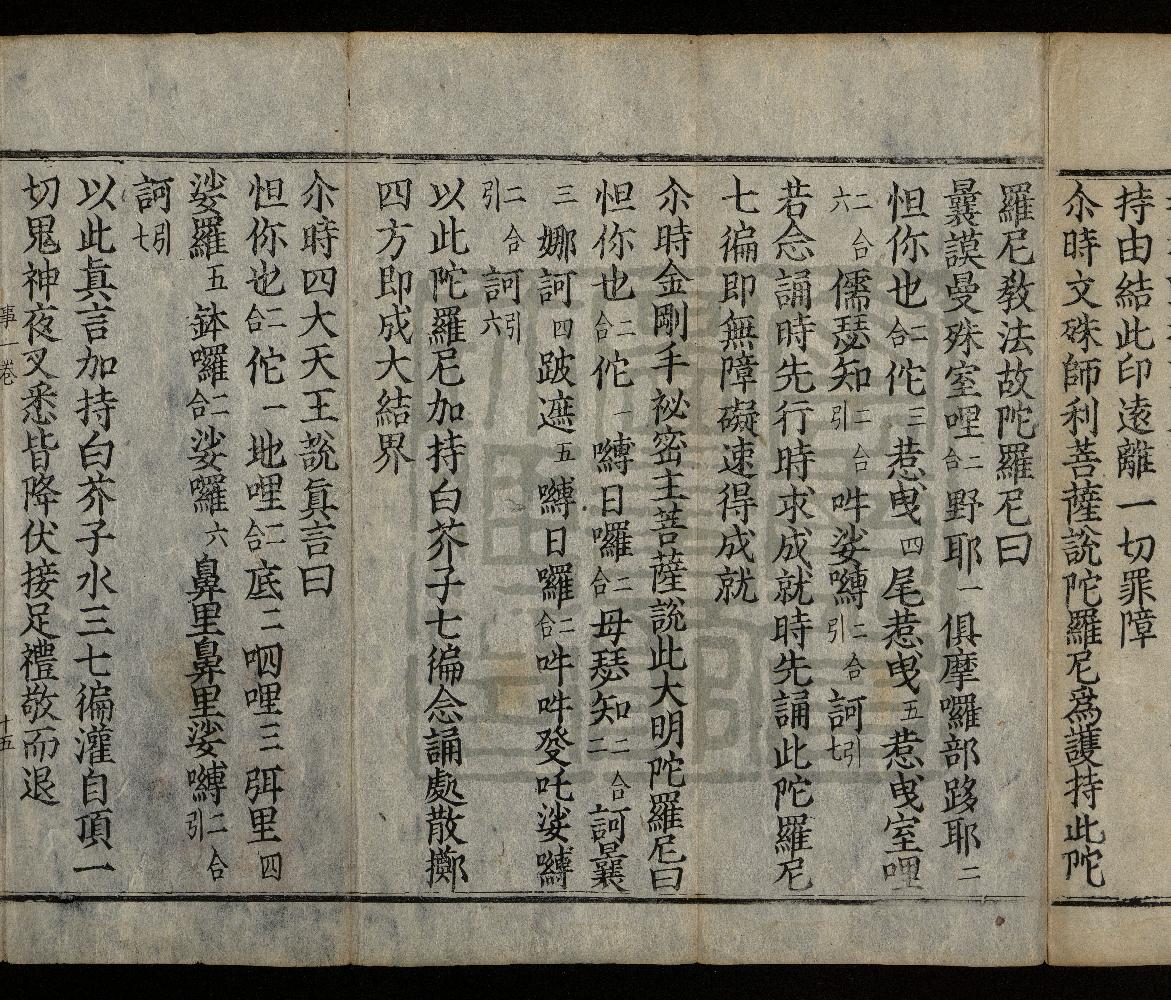 持由結此印遠離一切罪障
尒時文殊師利菩薩說陀羅尼爲護持此陀
羅尼敎法故陀羅尼曰
曩謨曼殊室哩二合野耶一俱摩囉部跢耶二
怛你也二合佗三惹曳四尾惹曳五惹曳室哩
二合六儒瑟知二合引吽娑嚩二合引訶引七
若念誦時先行時求成就時先誦此陀羅尼
七徧即無障礙速得成就
尒時金剛手祕密主菩薩說此大明陀羅尼曰
怛你也二合佗一嚩日囉二合母瑟知二合二訶曩
三娜訶四跛遮五嚩日囉二合吽吽發吒娑嚩
二合引訶引六
以此陀羅尼加持白芥子七徧念誦處散擲
四方即成大結界
尒時四大天王說眞言曰
怛你也二合佗一地哩二合底二呬哩三弭里四
娑羅五鉢囉二合娑囉六鼻里鼻里娑嚩二合引
訶引七
以此眞言加持白芥子水三七徧灌自頂一
切鬼神夜叉悉皆降伏接足禮敬而退
事一卷
十五